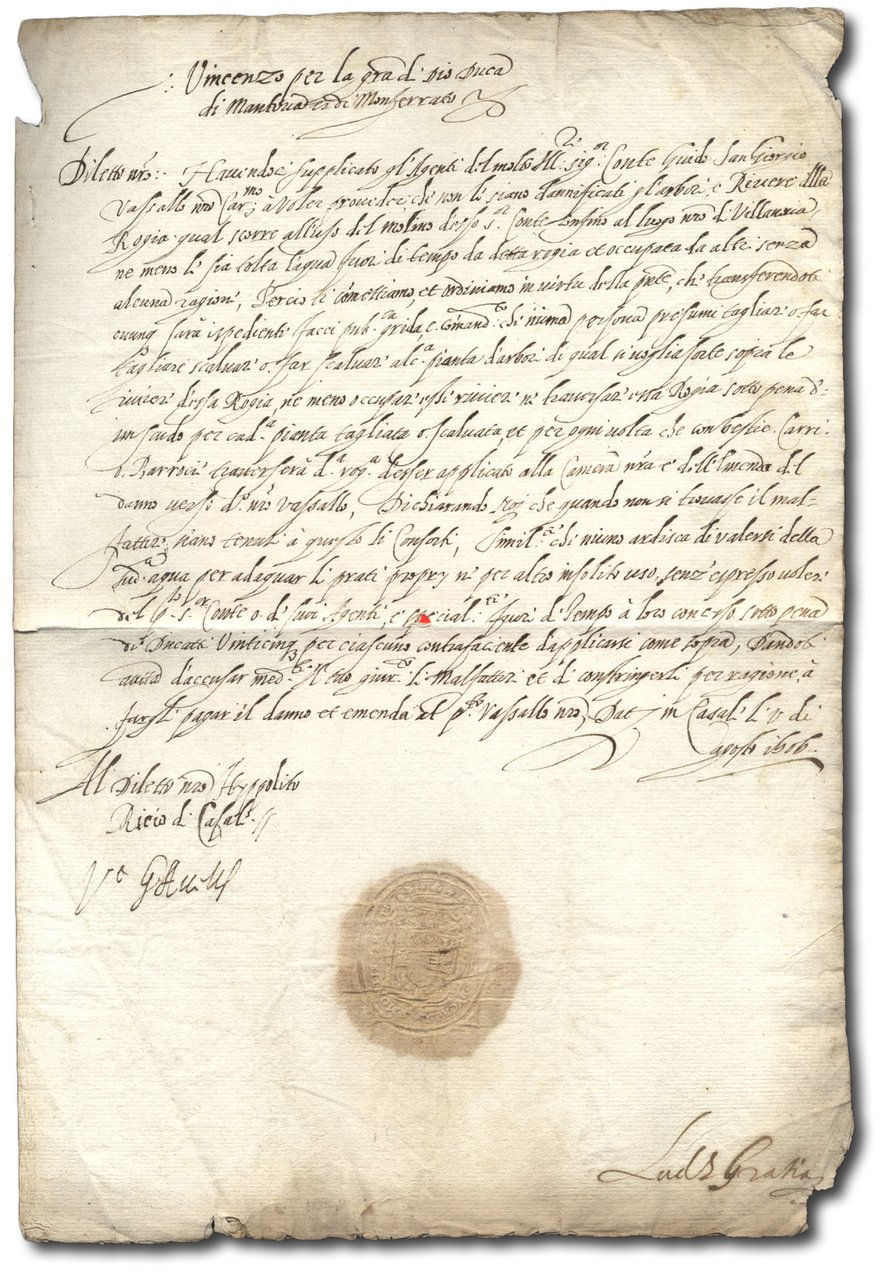 Vincenzo per la gra di Dio Duca
di Mantova et di Monferrato
Diletto nro: Havendoci supplicato gl'Agenti del molto Ill. sig.or Conte Guido San Giorgio
Vassallo nro Car.mo à voler proveder, che non li siano dannificati gl'arbori, e Rivere della
Rogia qual scorre all'uso del molino d'esso s.r Conte insino al luogo nro di Villanova,
ne meno li sia tolta l'aqua fuori di tempo da detta rogia et occupata da altri senza
alcuna ragione, Perciò ti comettiamo, et ordiniamo in virtu della pnte, che transferendoti
ovunq sarà ispediente facci pub.ca grida, e Comand.to che niuna persona presumi tagliar o far
tagliare scalvar o far scalvar alc.a pianta d'arbori di qual si voglia sorte sopra le
rivere d'essa Rogia, ne meno occupar esse rivere ne traversar essa Rogia sotto pena d'
un scudo per cad.a pianta tagliata o scalvata, et per ogni volta che con bestie Carri
o Barroci traverserà d.a rog.a d'esser applicato alla Camera nra e dell'emenda del
danno verso d.o nro vassallo, Dichiarando noi che quando non si trovasse il mal-
fattor, siano tenuti à questo li Consorti, Simil.te che niuno ardisca di valersi della
sud.a aqua per adaquar li prati proprij ne per altro insolito uso, senz'espresso voler
del p.to s.or Conte o de suoi Agenti, e special.te fuori di tempo à loro concesso sotto pena
di Ducati Vinticinq per ciascuno contrafaciente d'applicarsi come sopra, Dandoti
autta d'accusar med.te il tuo giur.to li Malfattori et di constringerli per ragione, à
fargli pagar il danno et emenda al p.to Vassallo nro, Dat in Casale li v di
agosto 1606
Al Diletto nro Hyppolito
Ricio di Casale
V.a